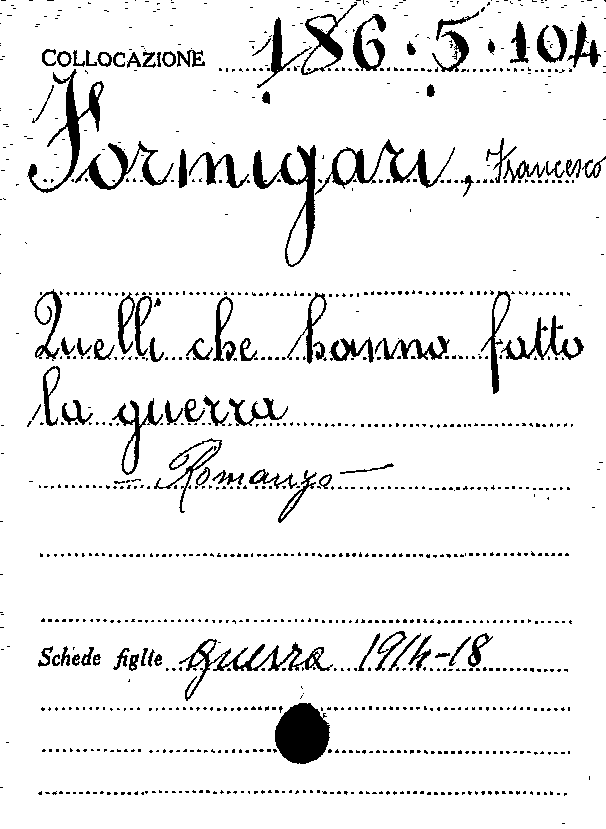 COLLOCAZIONE 186.5.104
Formigari, Francesco
Quelli che hanno fatto
la guerra
- Romanzo -
Schede figlie guerra 1914-18